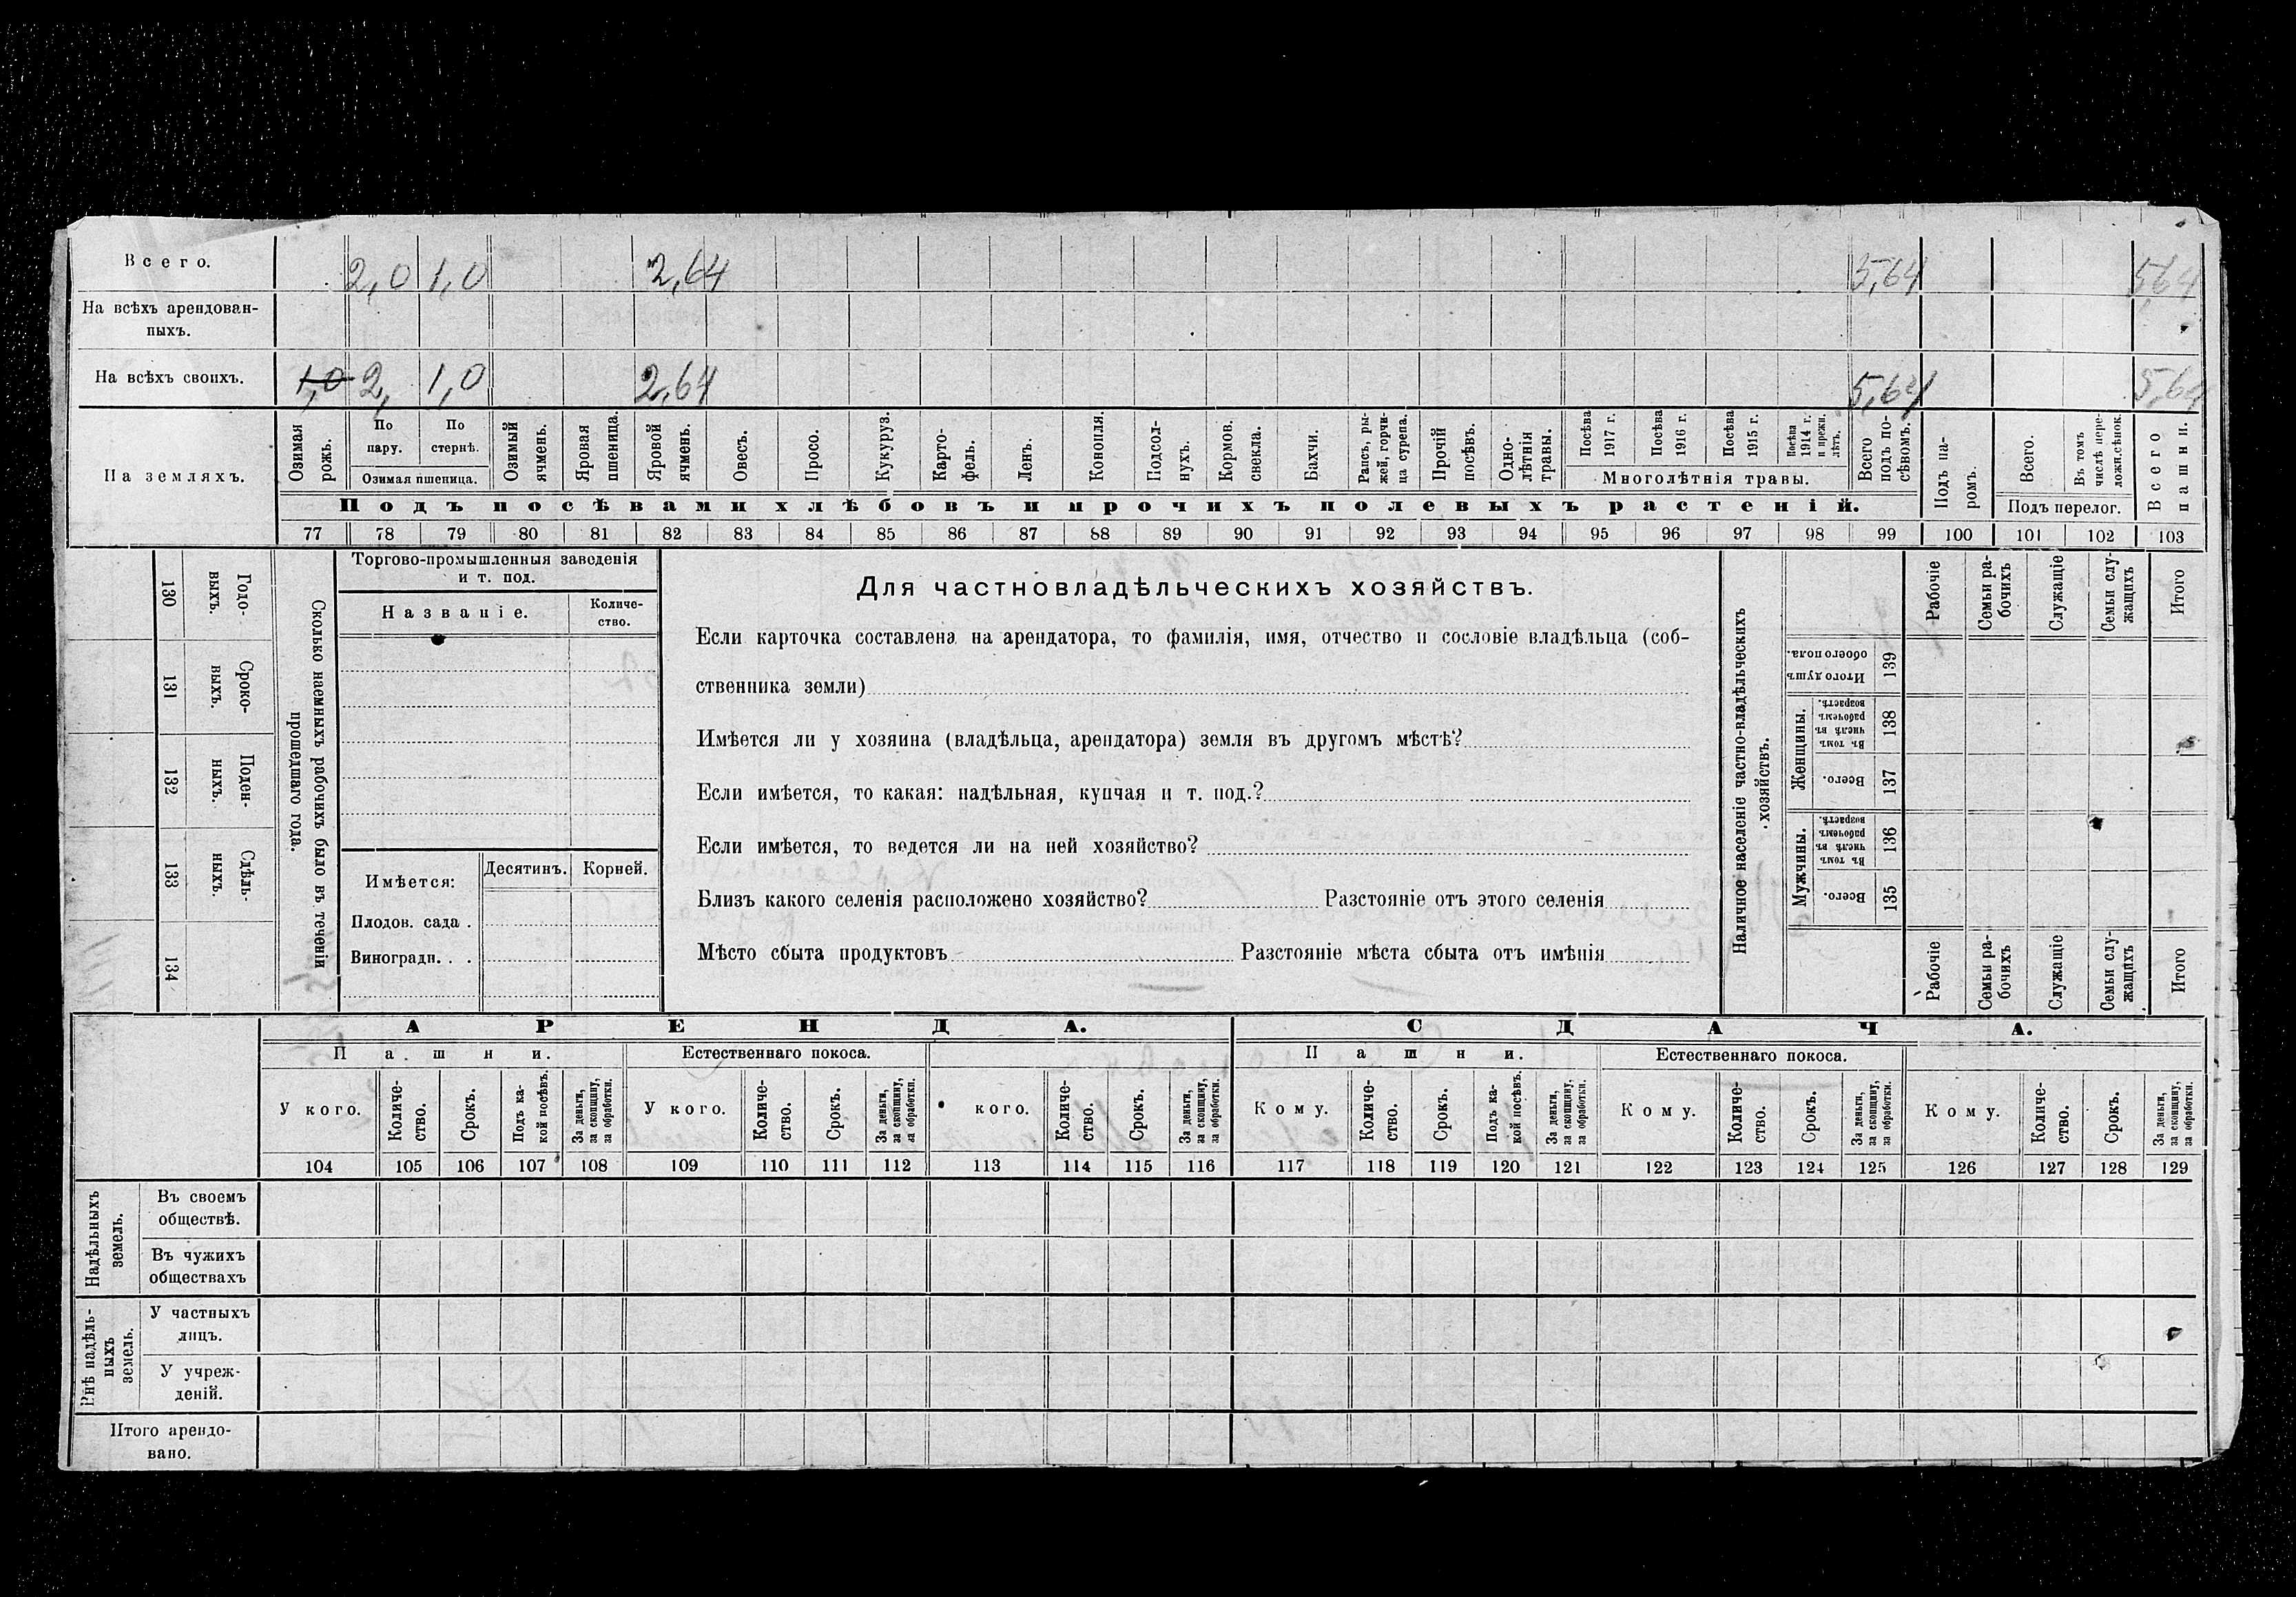 Всего. 2,0 1,0 2,64 5,64 5,64
На всѣхъ арендован-
ныхъ.
На всѣхъ своихъ. 1,0 2, 1,0 2,64 5,64 5,64
На земляхъ.
Озимая рожь.
По пару.
По стернѣ.
Озимая пшеница.
Озимый ячмень.
Яровая пшеница.
Яровой ячмень.
Овесъ.
Просо.
Кукуруз.
Карто-
фель.
Ленъ.
Конопля.
Подсол-
нухъ.
Кормов.
свекла.
Бахчи.
Рапсъ, ры-
жей, горчи-
ца сурепа.
Прочій
посѣвъ.
Одно-
лѣтнія
травы.
Посѣва
1917 г.
Посѣва
1916 г.
Посѣва
1915 г.
Посѣва
1914 г.
и прежн.
лѣтъ.
Многолѣтнія травы.
Всего
подъ по-
сѣвомъ.
Подъ па-
ромъ.
Всего.
Въ томъ
числѣ пере-
ложн. сѣнок.
Подъ перелог.
Всего
пашни.
Подъ посѣвами хлѣбовъ и прочихъ полевыхъ растеній.
77 78 79 80 81 82 83 84 85 86 87 88 89 90 91 92 93 94 95 96 97 98 99 100 101 102 103
130 Годо-
выхъ.
131 Сроко-
ныхъ.
132 Поден-
ныхъ.
133 Сдѣль-
ныхъ.
134
Сколько наемныхъ рабочихъ было въ теченіи
прошедшаго года.
Торгово-промышленныя заведенія
и т. под.
Названіе.
Количе-
ство.
Имѣется:
Десятинъ.
Корней.
Плодов. сада .
Виноградн. . .
Для частновладѣльческихъ хозяйствъ.
Если карточка составлена на арендатора, то фамилія, имя, отчество и сословіе владѣльца (соб-
ственника земли)
Имѣется ли у хозяина (владѣльца, арендатора) земля въ другомъ мѣстѣ?
Если имѣется, то какая: надѣльная, купчая и т. под.?
Если имѣется, то ведется ли на ней хозяйство?
Близъ какого селенія расположено хозяйство? Разстояніе отъ этого селенія
Мѣсто сбыта продуктовъ Разстояніе мѣста сбыта отъ имѣнія
Наличное населеніе частно-владѣльческихъ
хозяйствъ.
Рабочіе
Семьи ра-
бочихъ
Служащіе
Семьи слу-
жащихъ
Итого
Итого душъ
обоего пола. 139
Женщины.
Въ томъ
числѣ въ
рабочемъ
возрастѣ. 138
Всего. 137
Мужчины.
Въ томъ
числѣ въ
рабочемъ
возрастѣ. 136
Всего. 135
Рабочіе
Семьи ра-
бочихъ
Служащіе
Семьи слу-
жащихъ
Итого
АРЕНДА. СДАЧА.
Пашни. Естественнаго покоса. Пашни. Естественнаго покоса.
У кого.
Количе-
ство.
Срокъ.
Подъ ка-
кой посѣвъ.
За деньги,
за скопщину,
за обработки.
У кого.
Количе-
ство.
Срокъ.
За деньги,
за скопщину,
за обработки.
кого.
Количе-
ство.
Срокъ.
За деньги,
за скопщину,
за обработки.
Кому.
Количе-
ство.
Срокъ.
Подъ ка-
кой посѣвъ.
За деньги,
за скопщину,
за обработки.
Кому.
Количе-
ство.
Срокъ.
За деньги,
за скопщину,
за обработки.
Кому.
Количе-
ство.
Срокъ.
За деньги,
за скопщину,
за обработки.
104 105 106 107 108 109 110 111 112 113 114 115 116 117 118 119 120 121 122 123 124 125 126 127 128 129
Надѣльныхъ
земель.
Въ своемъ
обществѣ.
Въ чужихъ
обществахъ
Внѣ надѣль-
ныхъ
земель.
У частныхъ
лицъ.
У учреж-
деній.
Итого арендо-
вано.